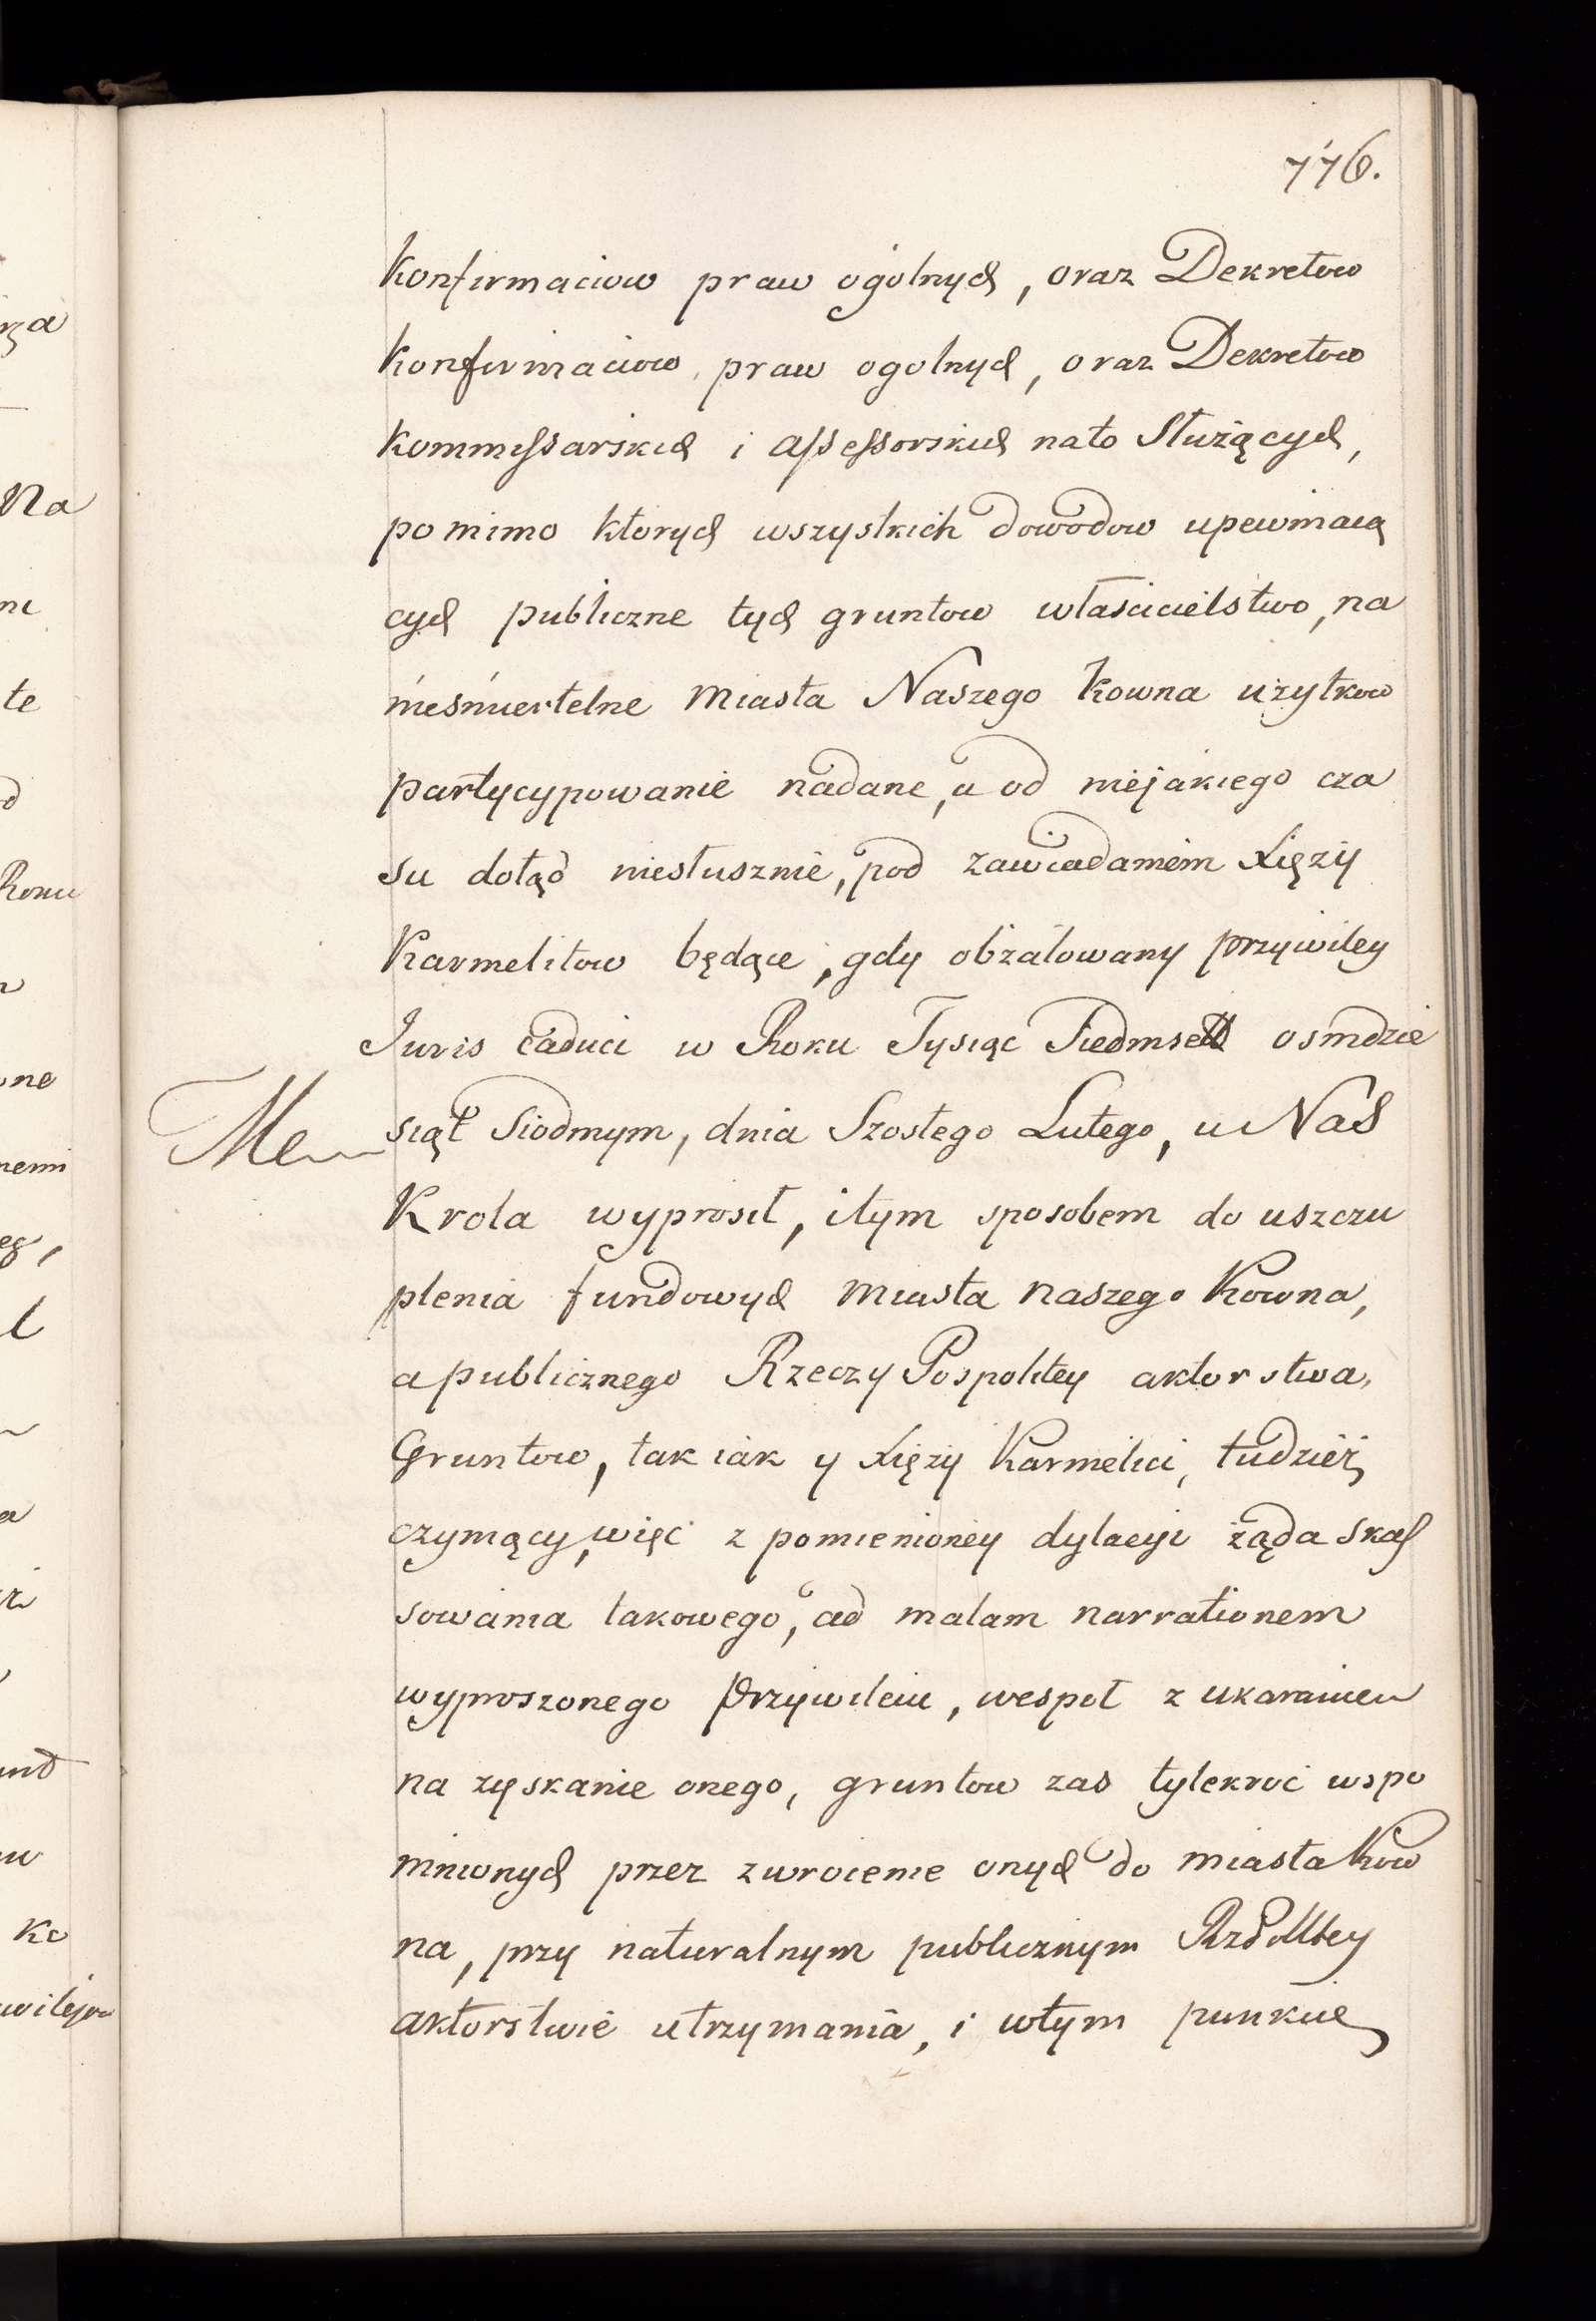 776.
Konfirmaciow praw ogolnych, oraz Dekretow
Konfirmaciow praw ogolnych, oraz Dekretow
Kommissarskich i Assessorskich nato Służących,
pomimo ktorych wszystkich dowodow upewniaią
cych publiczne tych gruntow właścicielstwo, na
nieśmiertelne Miasta Naszego Kowna użytkow
partycypowanie nadane, a od niejakiego cza
su dotąd niesłusznie, pod zawiadaniem Xięży
Karmelitow będące, gdy obżałowany przywiley
Juris caduci w Roku Tysiąc Siedmset osmdzie
siąt Siodmym, dnia Szostego Lutego, u Nas
Krola wyprosił, itym sposobem do uszczu
plenia fundowych Miasta naszego Kowna,
a publicznego Rzeczy Pospolitey aktorstwa,
Gruntow, tak iak y Xięży Karmelici, tudzież
czyniący, więc z pomienioney dylacyi żąda skas
sowania takowego, ad malam narrationem
wyproszonego Przywileiu, wespoł z ukaraniem
na zyskanie onego, gruntow zas tylekroć wspo
mnionych przez zwrocenie onych do miasta Kow
na, przy naturalnym publicznym RzPolltey
aktorstwie utrzymania, i wtym punkcie
rza
Na
ni
te
d
Roku
ne
nemi
eg,
l
a
und
w
ko
wilejow